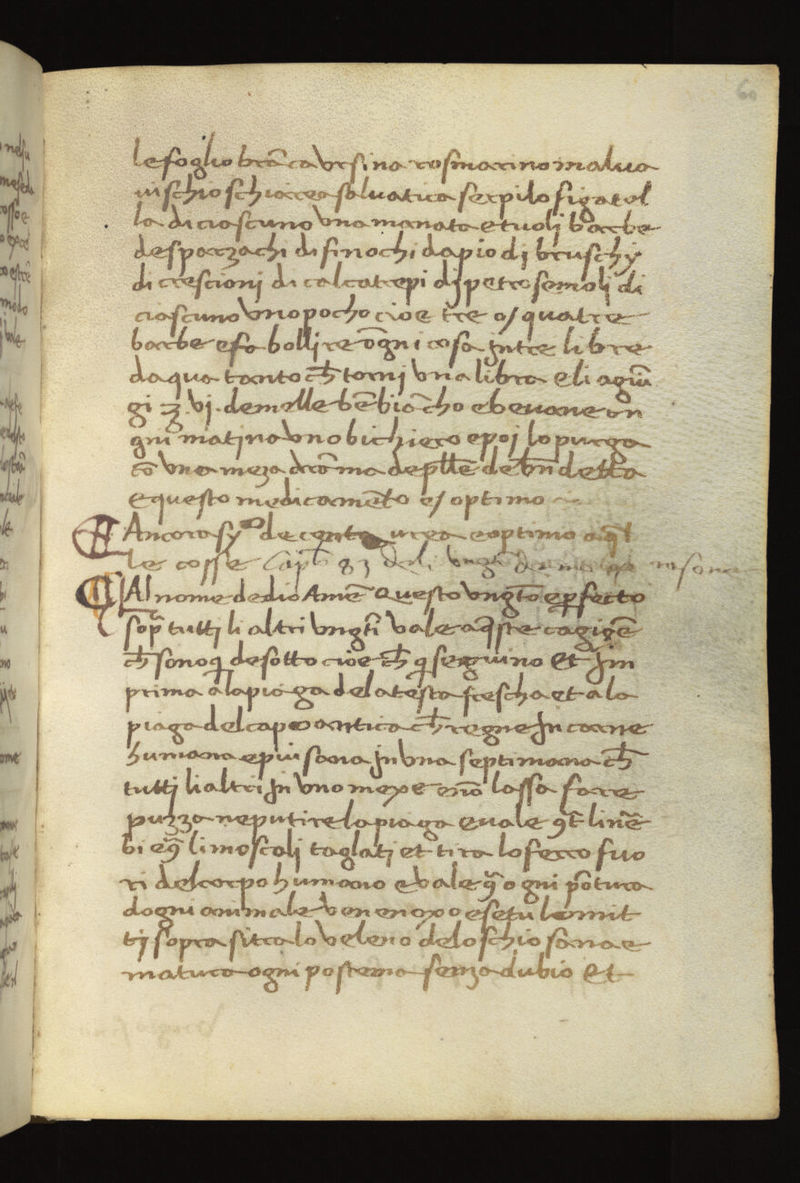 60
le foglio brãca ursina rosmarino malua
uischio schiarea saluatica serpilo figatel
la di ciascuno una manata e tuoli barbe
de sparzachi di finochi dapio dj bruschy
di crescioni di calcatrepi dj petrosemolj di
ciascuno uno pocho cioe tre o/ quatre
barbe e fa bollire õgni cosa jntre libre
daqua tanto ch̃ tornj una libra e li agiũ
gi ʒ vj. de melle bẽ biãcho e beuane on
gni matina uno bichiero e poj lo purga
cõ una meza drõma de pill̃e de bñdetta
e questo medicamẽto e/ optimo
Ancora sy de e optimo a q̃l
le cosse Cap̃ 83 deli ungt̃
Al nome de dio Amẽ Questo ungt̃o e perfecto
sop̃ tutti li altri ungt̃i vale a q̃ste cagiõe
ch̃ sono q̃ desotto cioe ch̃ q̃ seguino Et Jm
prima a la piaga de la testa frescha et a la
piaga del capo antica ch̃ regne jn carne
humana e piu sana jn una septimana ch̃
tutti li altri jn uno mexe e nõ lassa fare
puzza ne putire la piaga e uale 9t̃ li nẽ
bi e q̃ li moscoli taglati et tira lo ferro fuo
ri del corpo humano e vale q̃ ogni põtura
dogni animale venenoxo e se tu le mit
tj sopra sitra lo veleno delo schio sana e
matura ogni postema senza dubio Et